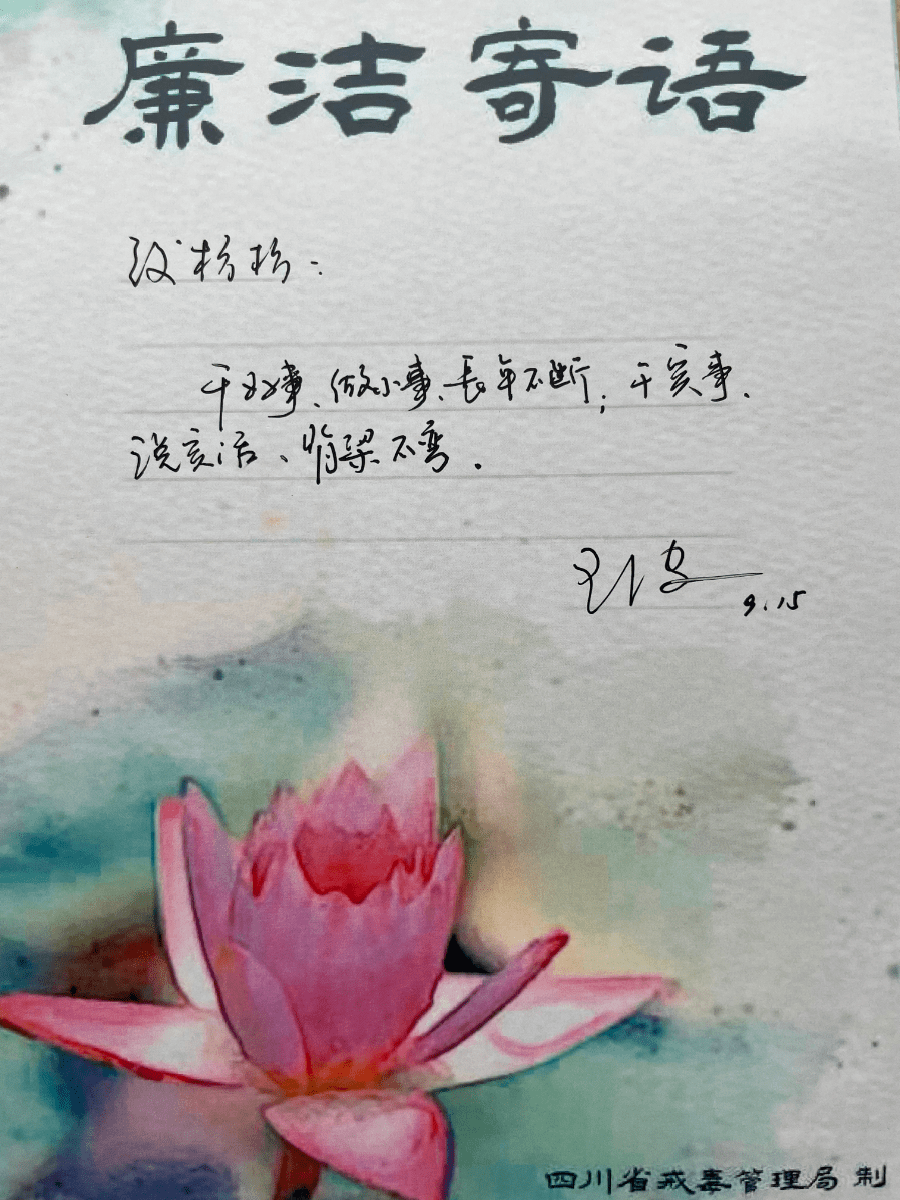 廉洁寄语
致杉杉：
干好事、做小事、长年不断；干实事、
说实话、脊梁不弯。
9.15
四川省戒毒管理局 制